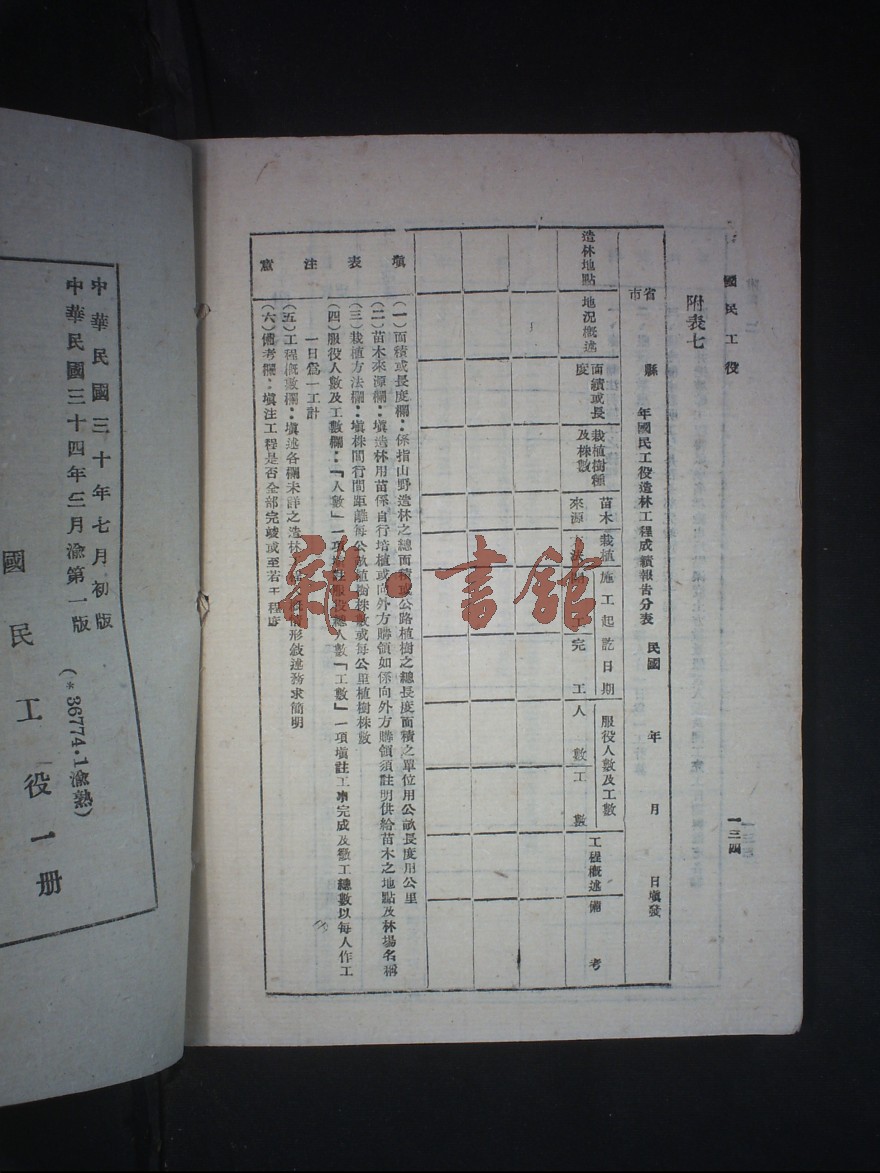 國民工役
一三四
附表七
省
市
縣
年國民工役造林工程成績報告分表
民國
年
月
日填發
造林地點
地況概述
面績或長度
栽植樹種及株數
苗木來源
栽植
法
施工起訖日期
工
完工
服役人數及工數
人數
工數
工程概述
備考
填表注意
(一)面積或長度欄：係指山野造林之總面積或公路植樹之總長度面積之單位用公畝長度用公里
(二)苗木來源欄：填造林用苗係自行培植或向外方購領如係向外方購領須註明供給苗木之地點及林場名稱
(三)栽植方法欄：填株間行間距離每公畝植樹株數或每公里植樹株數
(四)服役人數及工數欄：「人數」一項填註服役總人數「工數」一項填註工事完成及徵工總數以每人作工
一日爲一工計
(五)工程概數欄：填述各欄未詳之造林 情形敍述務求簡明
(六)備考欄：填注工程是否全部完竣或至若干程度
中華民國三十年七月初版
中華民國三十四年三月渝第一版
(*36774·1渝熟)
國民工役一册
雜·書館